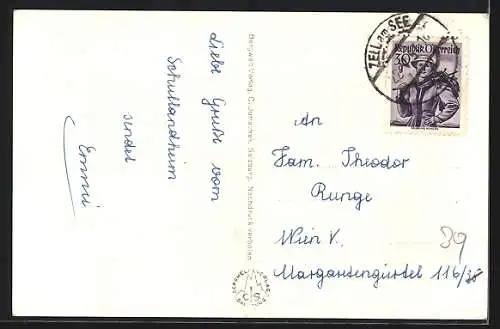 Liebe Grüße vom
Schullandheim
sendet
Emmi
Bergwelt-Verlag C. Jurischek, Salzburg, Nachdruck verboten
ZELL am SEE
REPUBLIK ÖSTERREICH
30
An
Fam. Theodor
Runge
Wien V.
Margaretengürtel 116/38
39